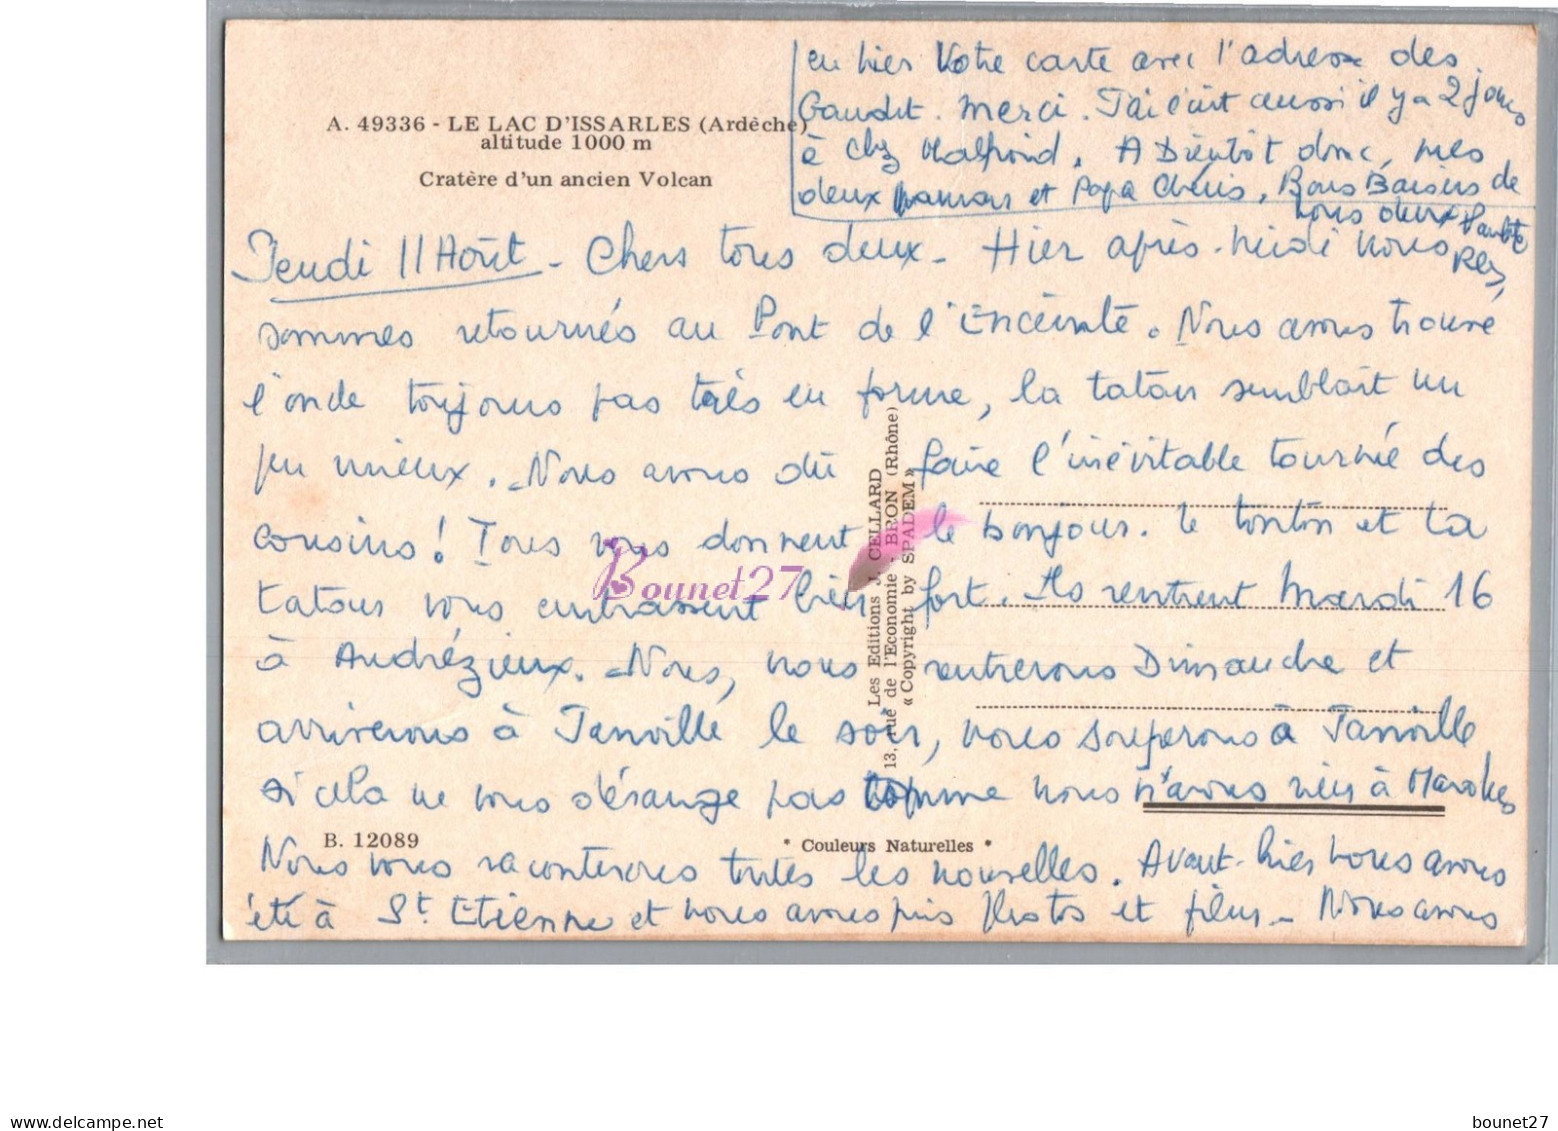 A. 49336 - LE LAC D'ISSARLES (Ardèche)
altitude 1000 m
Cratère d'un ancien Volcan
Jeudi 11 Août - Chers tous deux - Hier après-midi nous
sommes retournés au Pont de l'Enceinte. Nous avons trouvé
l'onde toujours pas très en forme, la tatan semblait un
peu mieux. Nous avons dû faire l'inévitable tournée des
cousins ! Tous vous donnent le bonjour. Le tonton et la
tatan vous embrassent bien fort. Ils rentrent Mardi 16
à Andrézieux. Nous, nous rentrerons Dimanche et
arriverons à Janville le soir, nous souperons à Janville
si cela ne vous dérange pas comme nous n'avons rien à
Nous vous raconterons toutes les nouvelles. Avant-hier nous avons
été à St Etienne et nous avons pris Photos et films - Nous avons
eu hier Votre carte avec l'adresse des
Gaudet. Merci. J'ai écrit aussi il y a 2 jours
à chez. A Bientôt donc, mes
deux mamans et Papa Chéris, Bons Baisers de
nous deux
B. 12089
* Couleurs Naturelles *
Les Editions J. CELLARD
13, rue de l'Economie - BRON (Rhône)
« Copyright by SPADEM »
Bounet27
www.delcampe.net
bounet27